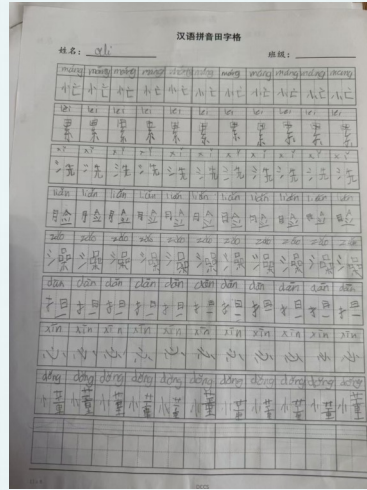 汉语拼音田字格
姓名： ali 班级：
máng máng máng máng máng máng máng máng máng máng máng
忙 忙 忙 忙 忙 忙 忙 忙 忙 忙 忙
lèi lèi lèi lèi lèi lèi lèi lèi lèi lèi
累 累 累 累 累 累 累 累 累 累
xǐ xǐ xǐ xǐ xǐ xǐ xǐ xǐ xǐ xǐ xǐ
洗 洗 洗 洗 洗 洗 洗 洗 洗 洗 洗
liǎn liǎn liǎn liǎn liǎn liǎn liǎn liǎn liǎn liǎn liǎn
脸 脸 脸 脸 脸 脸 脸 脸 脸 脸 脸
zǎo zǎo zǎo zǎo zǎo zǎo zǎo zǎo zǎo zǎo zǎo
澡 澡 澡 澡 澡 澡 澡 澡 澡 澡 澡
dān dān dān dān dān dān dān dān dān dān dān
担 担 担 担 担 担 担 担 担 担 担
xīn xīn xīn xīn xīn xīn xīn xīn xīn xīn xīn
心 心 心 心 心 心 心 心 心 心 心
dǒng dǒng dǒng dǒng dǒng dǒng dǒng dǒng dǒng dǒng dǒng
懂 懂 懂 懂 懂 懂 懂 懂 懂 懂 懂